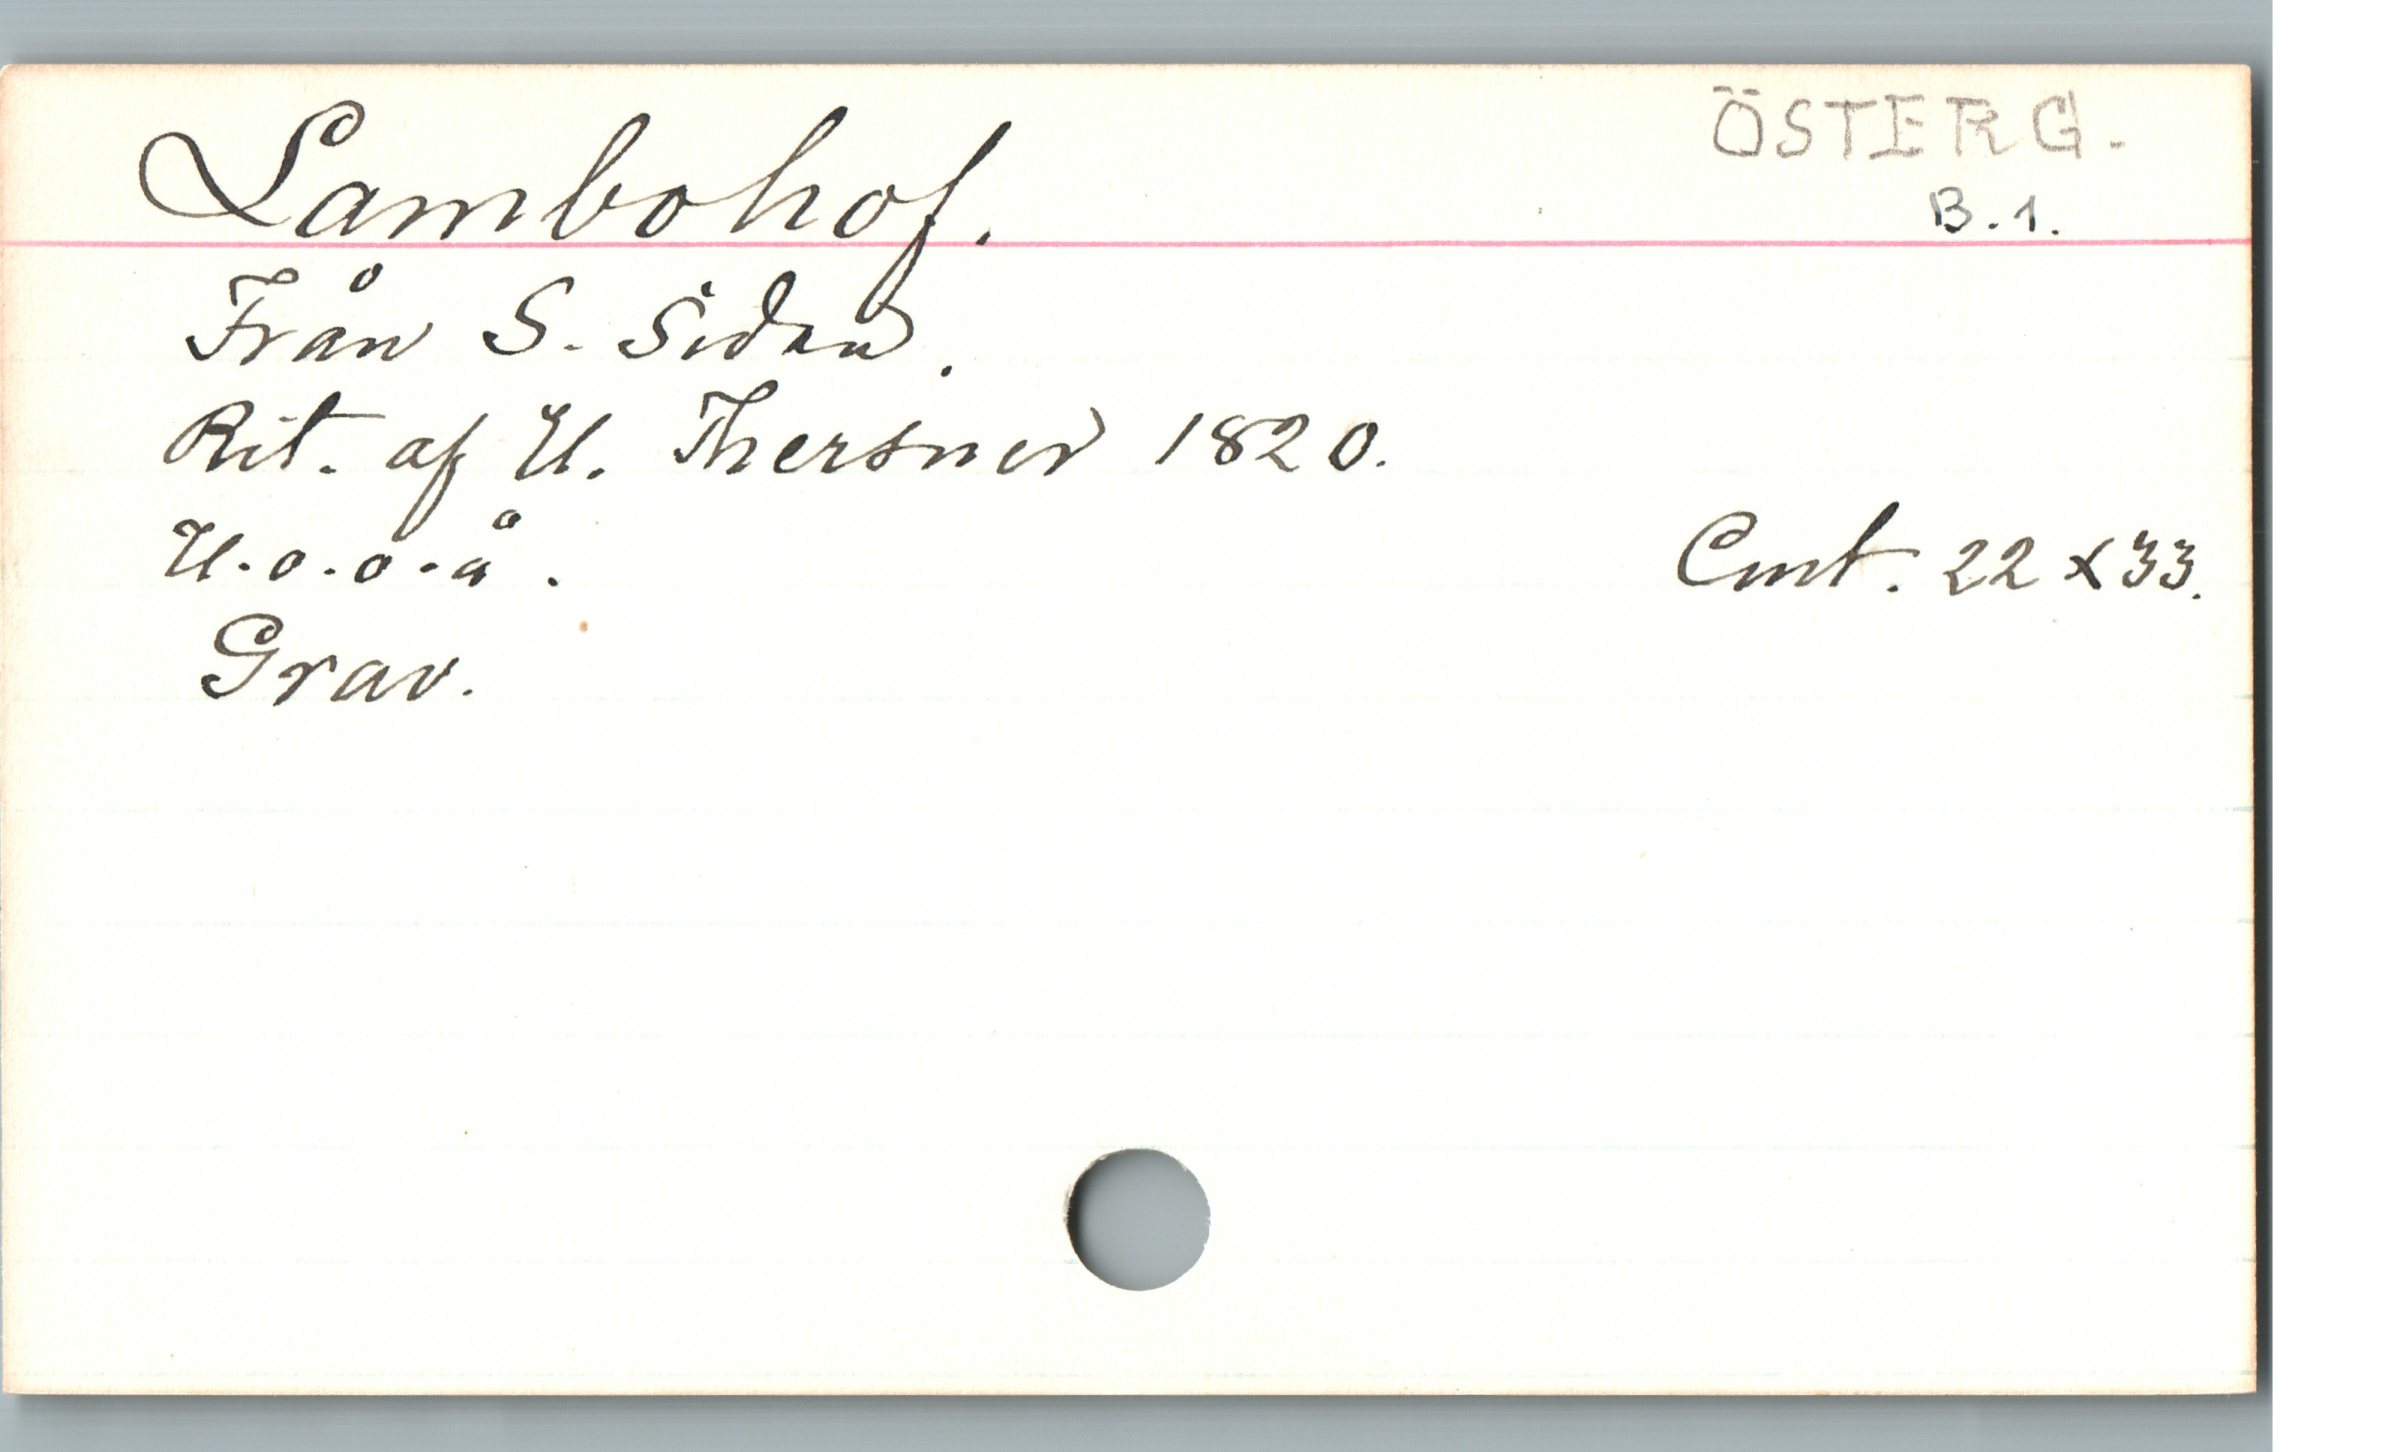 Lambohof.
ÖSTERG.
B.1.
Från S. Sidan.
Rit. af U. Thersner 1820.
U.o.o.å.
Cmt. 22 x 33.
Grav.